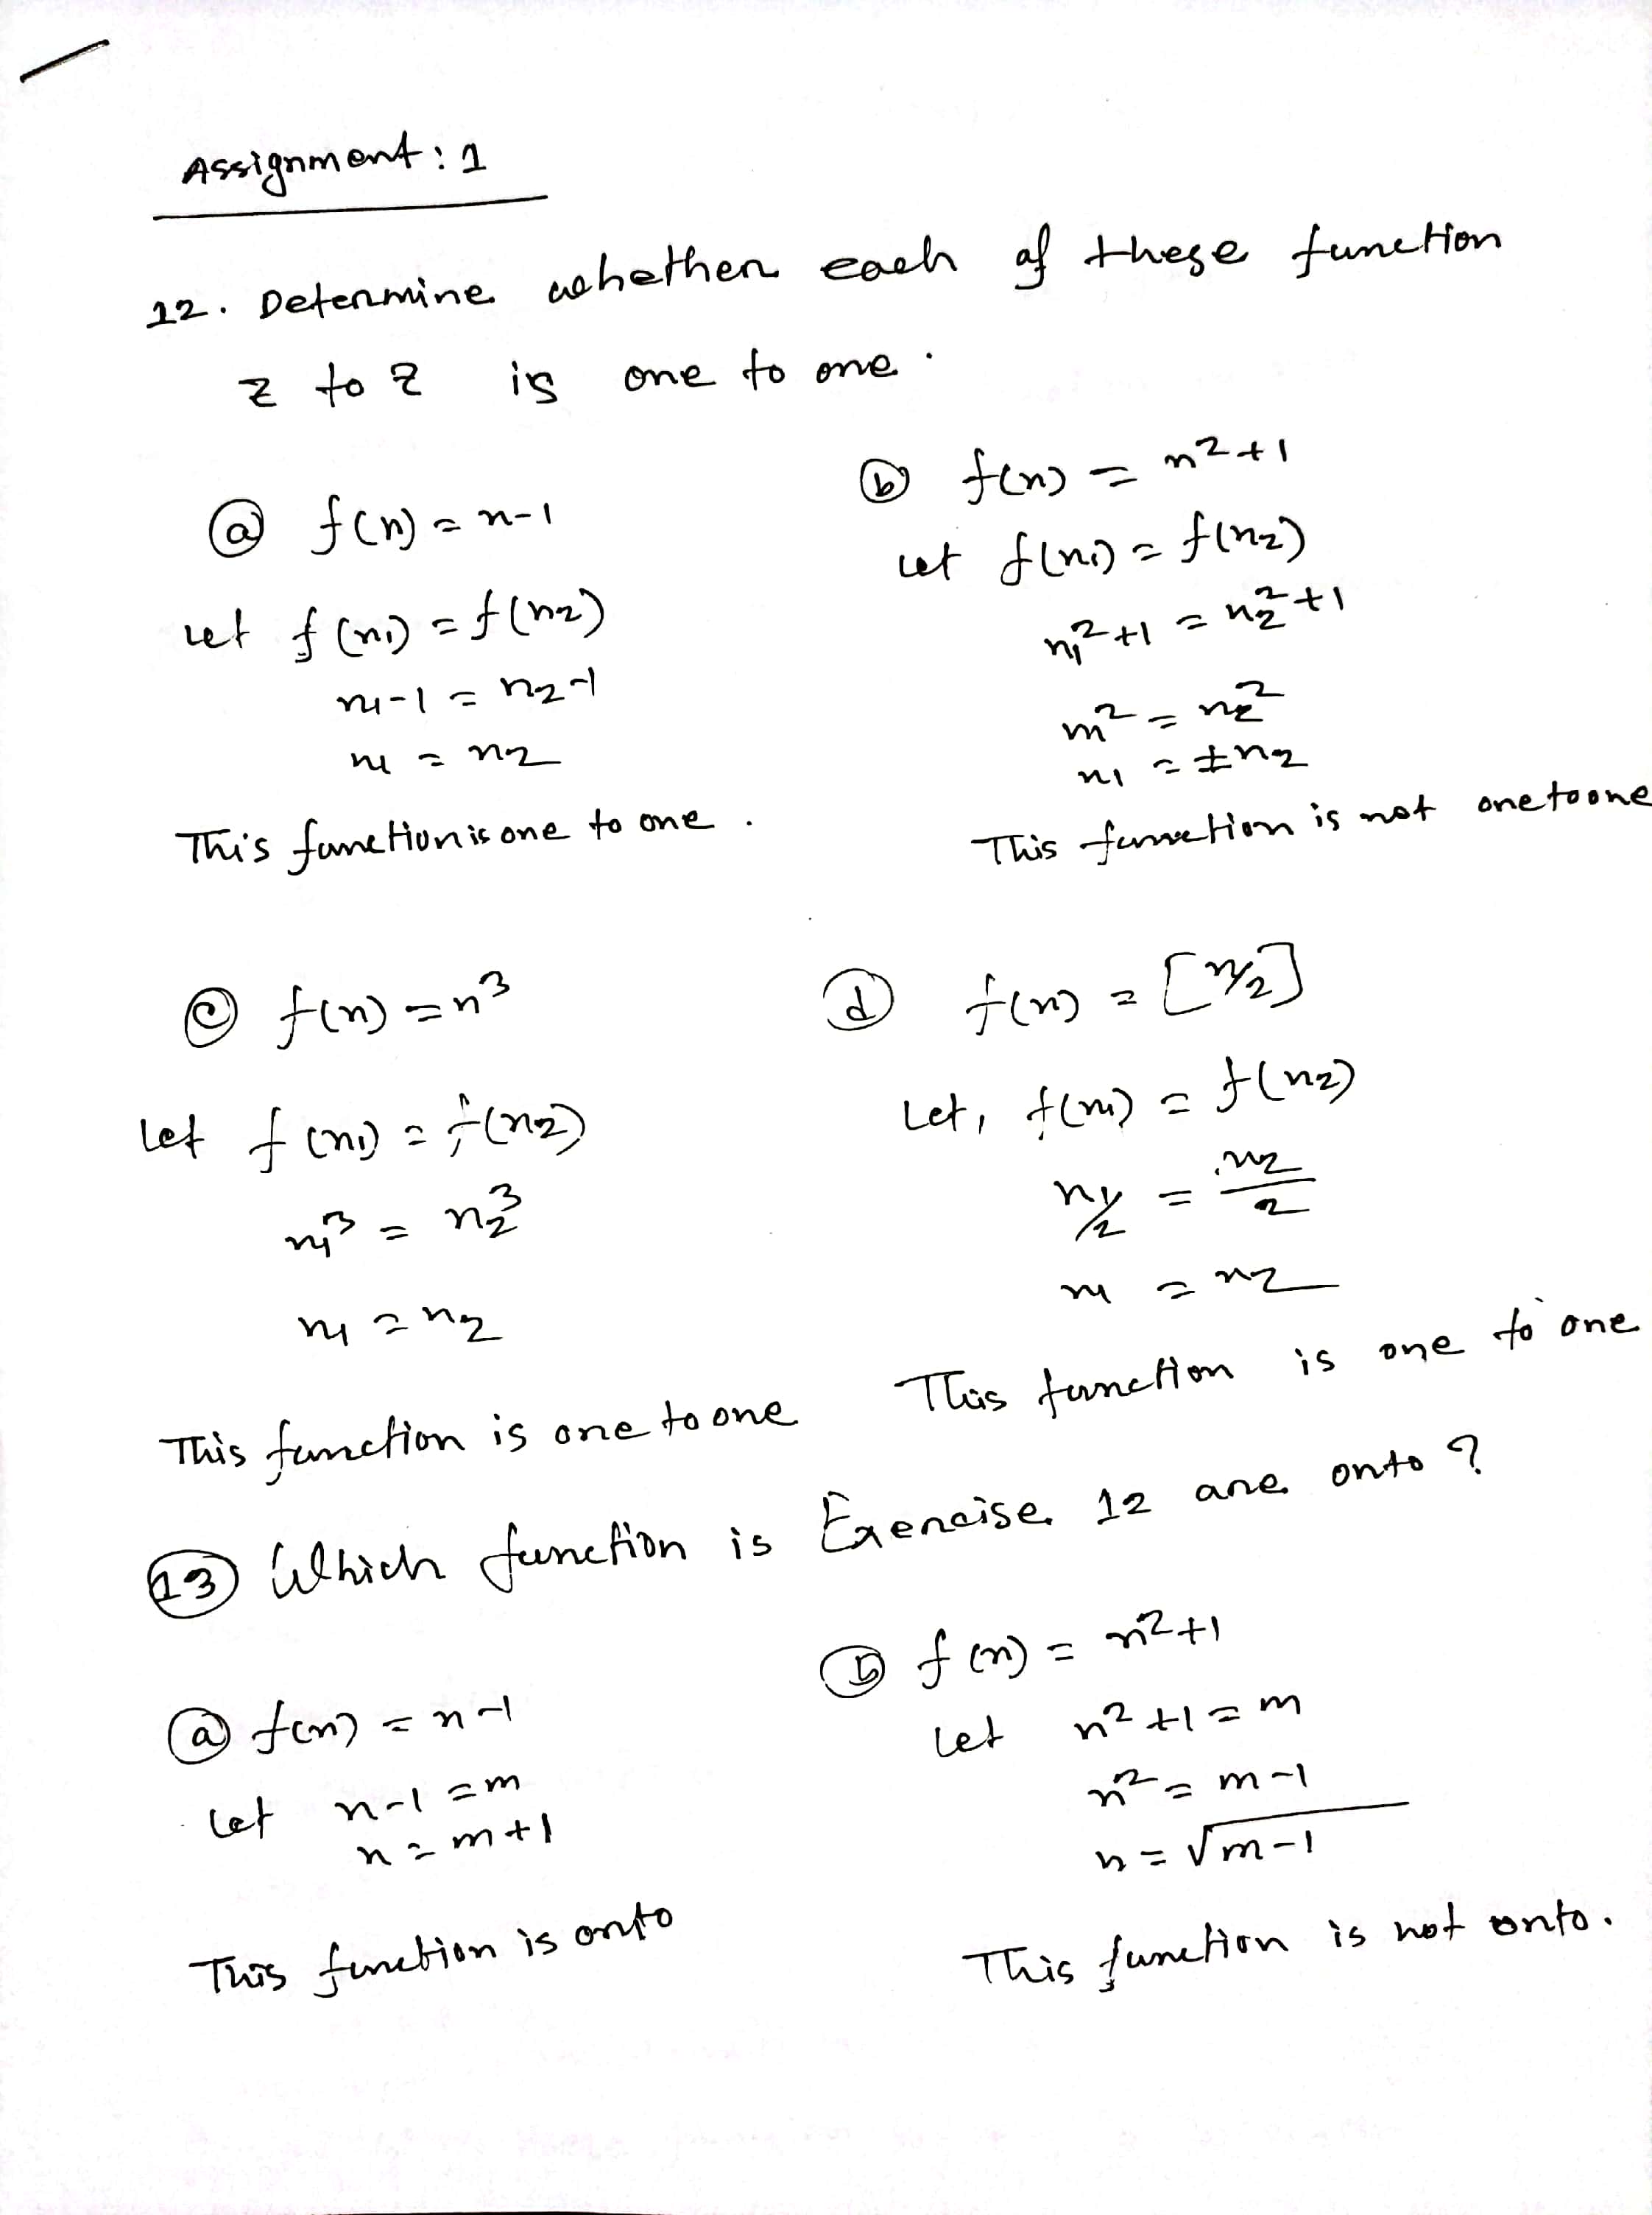 Assignment : 1
12. Determine whether each of these function
Z to Z is one to one.
(a) f(n) = n-1
Let f(n1) = f(n2)
n1-1 = n2-1
n1 = n2
This function is one to one.
(b) f(n) = n²+1
Let f(n1) = f(n2)
n1²+1 = n2²+1
n1² = n2²
n1 = ±n2
This function is not one to one
(c) f(n) = n³
Let f(n1) = f(n2)
n1³ = n2³
n1 = n2
This function is one to one
(d) f(n) = [n/2]
Let, f(n1) = f(n2)
n1/2 = n2/2
n1 = n2
This function is one to one
(13) Which function is Exercise 12 are onto?
(a) f(n) = n-1
Let n-1 = m
n = m+1
This function is onto
(b) f(n) = n²+1
Let n²+1 = m
n² = m-1
n = √m-1
This function is not onto.